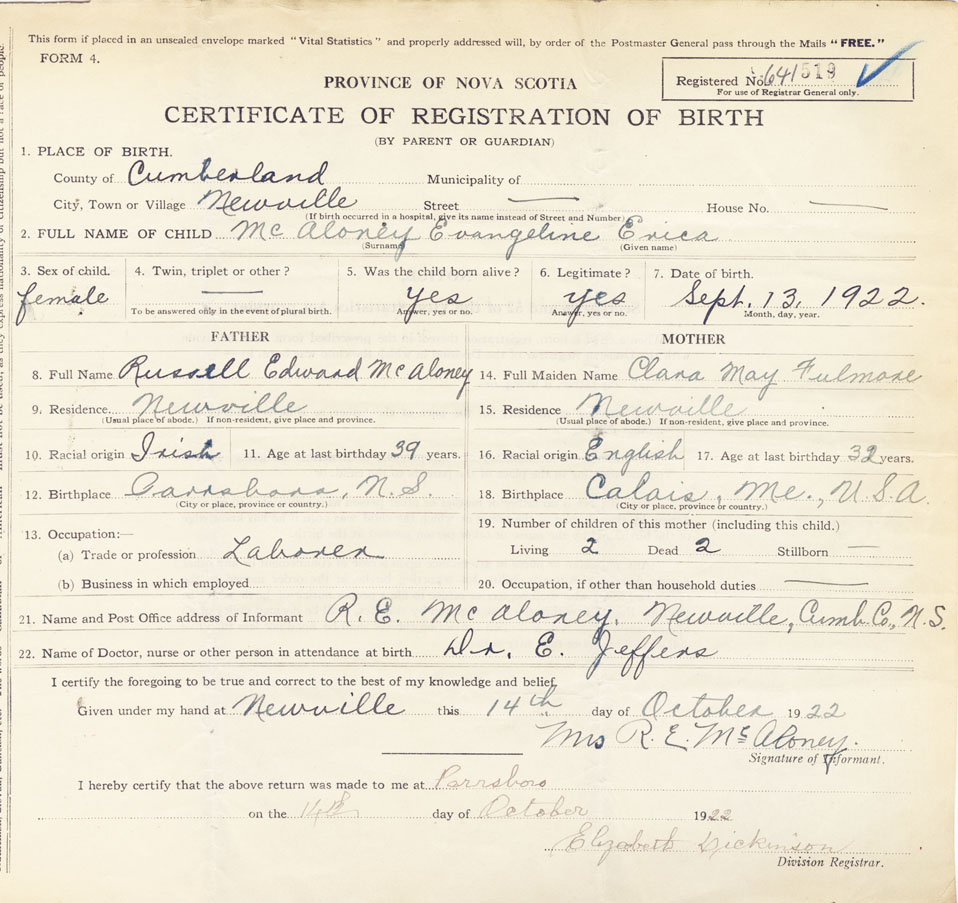 This form if placed in an unsealed envelope marked "Vital Statistics" and properly addressed will, by order of the Postmaster General pass through the Mails "FREE."
FORM 4.
Registered No. 641519
For use of Registrar General only.
PROVINCE OF NOVA SCOTIA
CERTIFICATE OF REGISTRATION OF BIRTH
(BY PARENT OR GUARDIAN)
1. PLACE OF BIRTH.
County of Cumberland Municipality of
City, Town or Village Newville Street — House No. —
(If birth occurred in a hospital, give its name instead of Street and Number)
2. FULL NAME OF CHILD McAloney Evangeline Erica
(Surname) (Given name)
3. Sex of child. 4. Twin, triplet or other? 5. Was the child born alive? 6. Legitimate? 7. Date of birth.
female — yes yes Sept. 13, 1922.
To be answered only in the event of plural birth. Answer, yes or no. Answer, yes or no. Month, day, year.
FATHER MOTHER
8. Full Name Russell Edward McAloney 14. Full Maiden Name Clara May Fulmore
9. Residence Newville 15. Residence Newville
(Usual place of abode.) If non-resident, give place and province. (Usual place of abode.) If non-resident, give place and province.
10. Racial origin Irish 11. Age at last birthday 39 years. 16. Racial origin English 17. Age at last birthday 32 years.
12. Birthplace Parrsboro, N.S. 18. Birthplace Calais, Me., U.S.A.
(City or place, province or country.) (City or place, province or country.)
13. Occupation:— 19. Number of children of this mother (including this child.)
(a) Trade or profession Laborer Living 2 Dead 2 Stillborn —
(b) Business in which employed 20. Occupation, if other than household duties —
21. Name and Post Office address of Informant R. E. McAloney, Newville, Cumb. Co., N.S.
22. Name of Doctor, nurse or other person in attendance at birth Dr. E. Jeffers
I certify the foregoing to be true and correct to the best of my knowledge and belief.
Given under my hand at Newville this 14th day of October 1922
Mrs R. E. McAloney.
Signature of Informant.
I hereby certify that the above return was made to me at Parrsboro
on the 14th day of October 1922
Elizabeth Dickinson
Division Registrar.